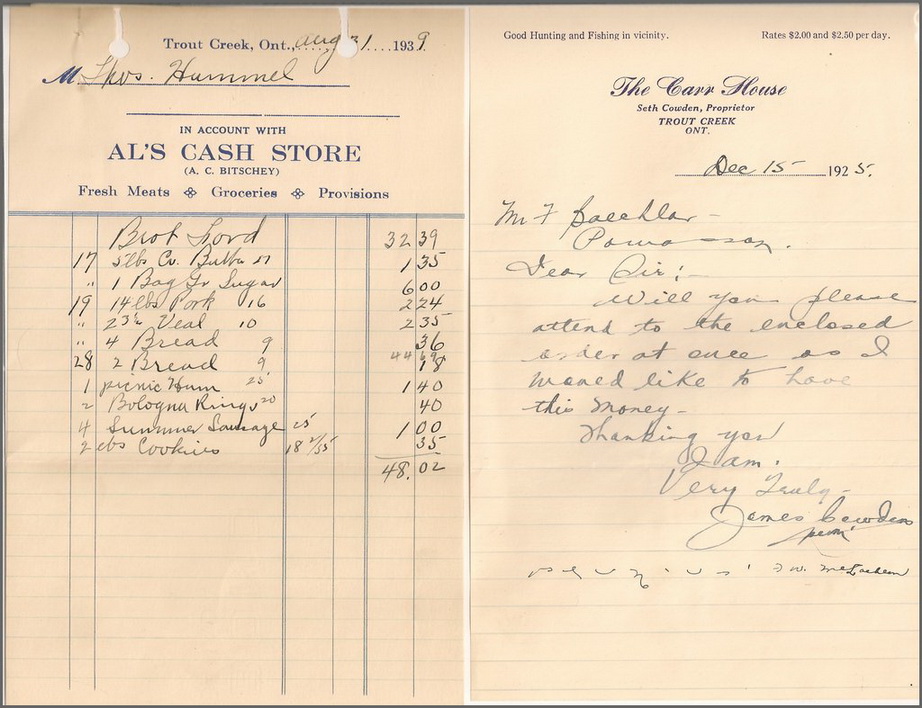 Trout Creek, Ont., Aug 31 1939
M Thos. Hummel
IN ACCOUNT WITH
AL'S CASH STORE
(A. C. BITSCHEY)
Fresh Meats Groceries Provisions
Brot Ford 32 39
17 5 lbs Cr. Butter 27 1 35
" 1 Bag Gr Sugar 6 00
19 14 lbs Pork 16 2 24
" 23½ Veal 10 2 35
" 4 Bread 9 36
44 69
28 2 Bread 9 18
1 picnic Ham 25 1 40
2 Bologna Rings 20 40
4 Summer Sausage 25 1 00
2 lbs Cookies 18 2/35 35
48.02
Good Hunting and Fishing in vicinity. Rates $2.00 and $2.50 per day.
The Carr House
Seth Cowden, Proprietor
TROUT CREEK
ONT.
Dec 15 1925.
Mr F
Dear Sir:-
Will you please
attend to the enclosed
order at once as I
would like to have
this money-
Thanking you
I am.
Very Truly-
James Cowden
per